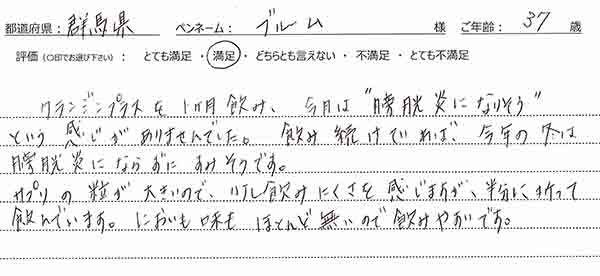 都道府県： 群馬県 ペンネーム： ブルーム 様 ご年齢： 37 歳
評価（○印でお選び下さい）： とても満足 ・ 満足 ・ どちらとも言えない ・ 不満足 ・ とても不満足
クランジンプラスを1ヵ月飲み、今月は"膀胱炎になりそう"
という感じがありませんでした。飲み続けていれば、今年の冬は
膀胱炎にならずにすみそうです。
サプリの粒が大きいので、少し飲みにくさを感じますが、半分に折って
飲んでいます。においも味もほとんど無いので飲みやすいです。